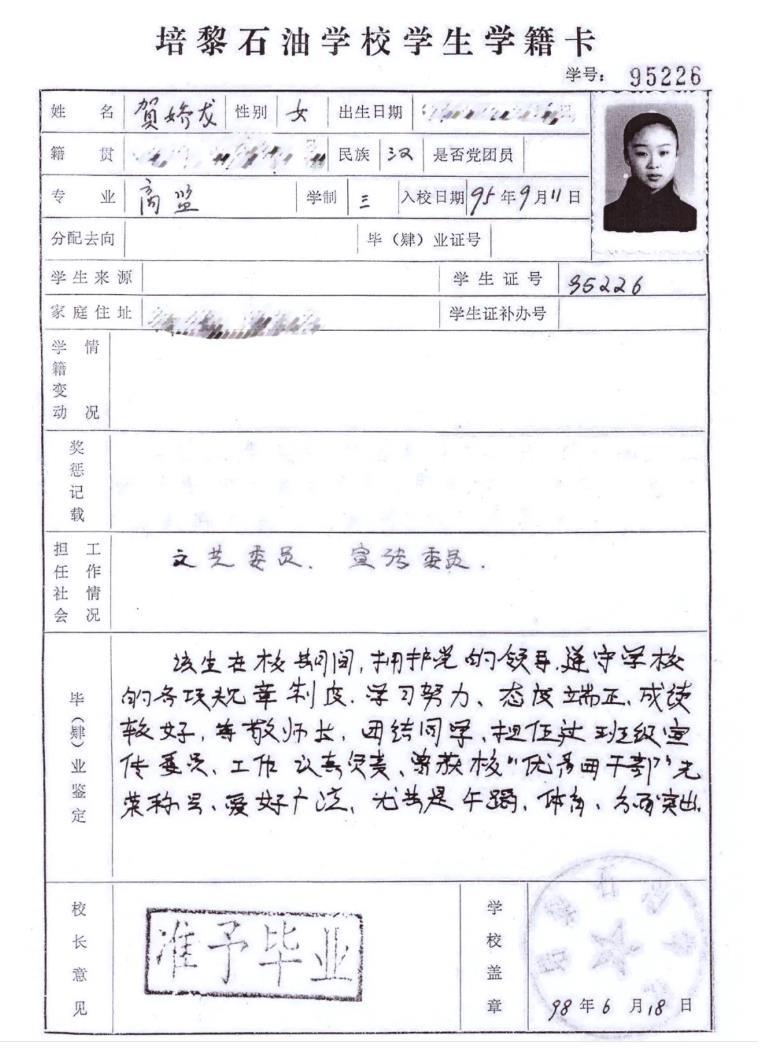 培黎石油学校学生学籍卡
学号: 95226
姓名 賀娇龙 性别 女 出生日期
籍贯 民族 汉 是否党团员
专业 商监 学制 三 入校日期 95年9月11日
分配去向 毕（肄）业证号
学生来源 学生证号 95226
家庭住址 学生证补办号
学籍变动情况
奖惩记载
担任社会工作情况 文艺委员、宣传委员.
毕（肄）业鉴定
该生在校期间,拥护党的领导,遵守学校
的各项规章制度.学习努力、态度端正,成绩
较好,尊敬师长,团结同学,担任过班级宣
传委员、工作认真负责、曾获校"优秀团干部"光
荣称号、爱好广泛,尤其是午蹈、体育、方面突出.
校长意见 准予毕业
学校盖章 98年6月18日